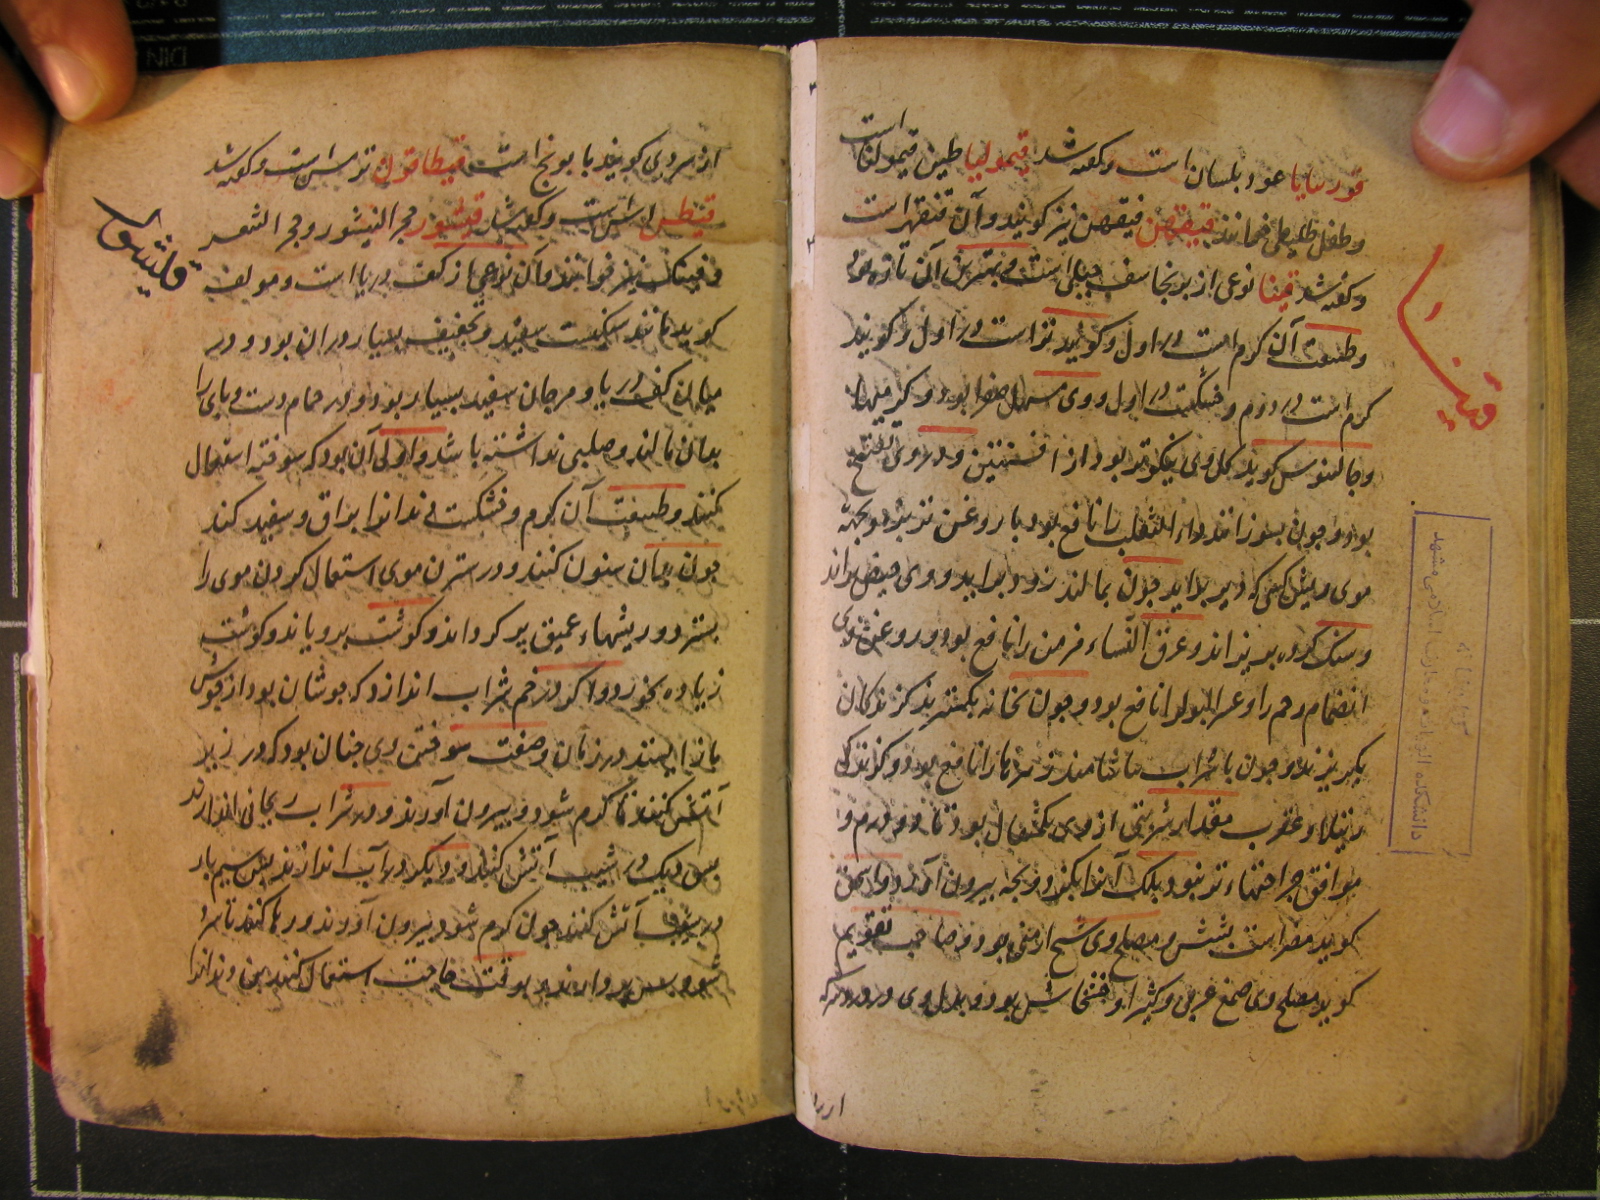 قورسایا عود بلسان است و گفته شد قیمولیا طین قیمولیا است
و طفل طلیطلی خوانند قیقهن فیقهن نیز گویند و آن قنقهر است
و گفته شد قینا نوعی از برنجاسف جبلی است و بهترین آن تازه بود
و طبیعت آن گرم است در اول و گویند تر است در اول و گویند
گرم است در دوم و خشکست در اول و وی مسهل صفرا بود و کرمها
و جالینوس گوید کل وی نیکوتر بود از افسنتین و در وی تفتیح
بود و چون بسوزانند داء الثعلب را نافع بود با روغن ترب و بجهة
موی ریش کسی که دیر برآید چون بمالند زود برآید و وی حیض براند
و سنک کرده بریزاند و عرق النساء مزمن را نافع بود و روغن وی
انضمام رحم را و عسر البول را نافع بود و چون بخانه بگسترند گزندگان
بگریزند و چون با شراب بیاشامند زهرها را نافع بود و گزندگی
رتیلا و عقرب مقدار شربتی از وی یکمثقال بود تا دو درم و
موافق جراحتهاء تر نبود بلک آنرا بگیرند و پخته بیرون آرند و اسحق
گوید مضر است بشش و مصلح وی شیح ارمنی بود و صاحب تقویم
گوید مصلح وی صمغ عربی و کثیرا و خشخاش بود و بدل وی در ورم سرکه
قینا
از سردی گویند بابونج است قیطاقون ترمس است و گفته شد
قیطس است و گفته شد قیشور حجر القیشور و حجر الشعر
و فینک نیز خوانند و آن نوعی از کف دریا است و مولف
گوید مانند سنکیست سفید و تجفیف بسیار در آن بود و در
میان کف دریا و مرجان سفید بسیار بود و در حمام دست و پای را
بدان مالند و صلبی نداشته باشد و اولی آن بود که سوخته استعمال
کنند و طبیعت آن گرم و خشکست دندانرا براق و سفید کند
چون بدان سنون کنند و در ستردن موی استعمال کردن موی را
بسترد و ریشهاء عمیق پر گرداند و گوشت برویاند و گوشت
زیاده بخورد و اگر در خم شراب اندازد که جوشان بود از جوش
باز ایستد در زمان و صفت سوختن وی چنان بود که در زیر
آتش کنند تا گرم شود و بیرون آورند و در شراب ریحانی اندازند
پس دیگر در شیب آتش کنند و دیگر در آب اندازند پس سیم بار
در شیب آتش کنند چون گرم شود بیرون آورند و رها کنند تا سرد
شود پس بردارند و بوقت حاجت استعمال کنند بن دندانرا
قلیشور